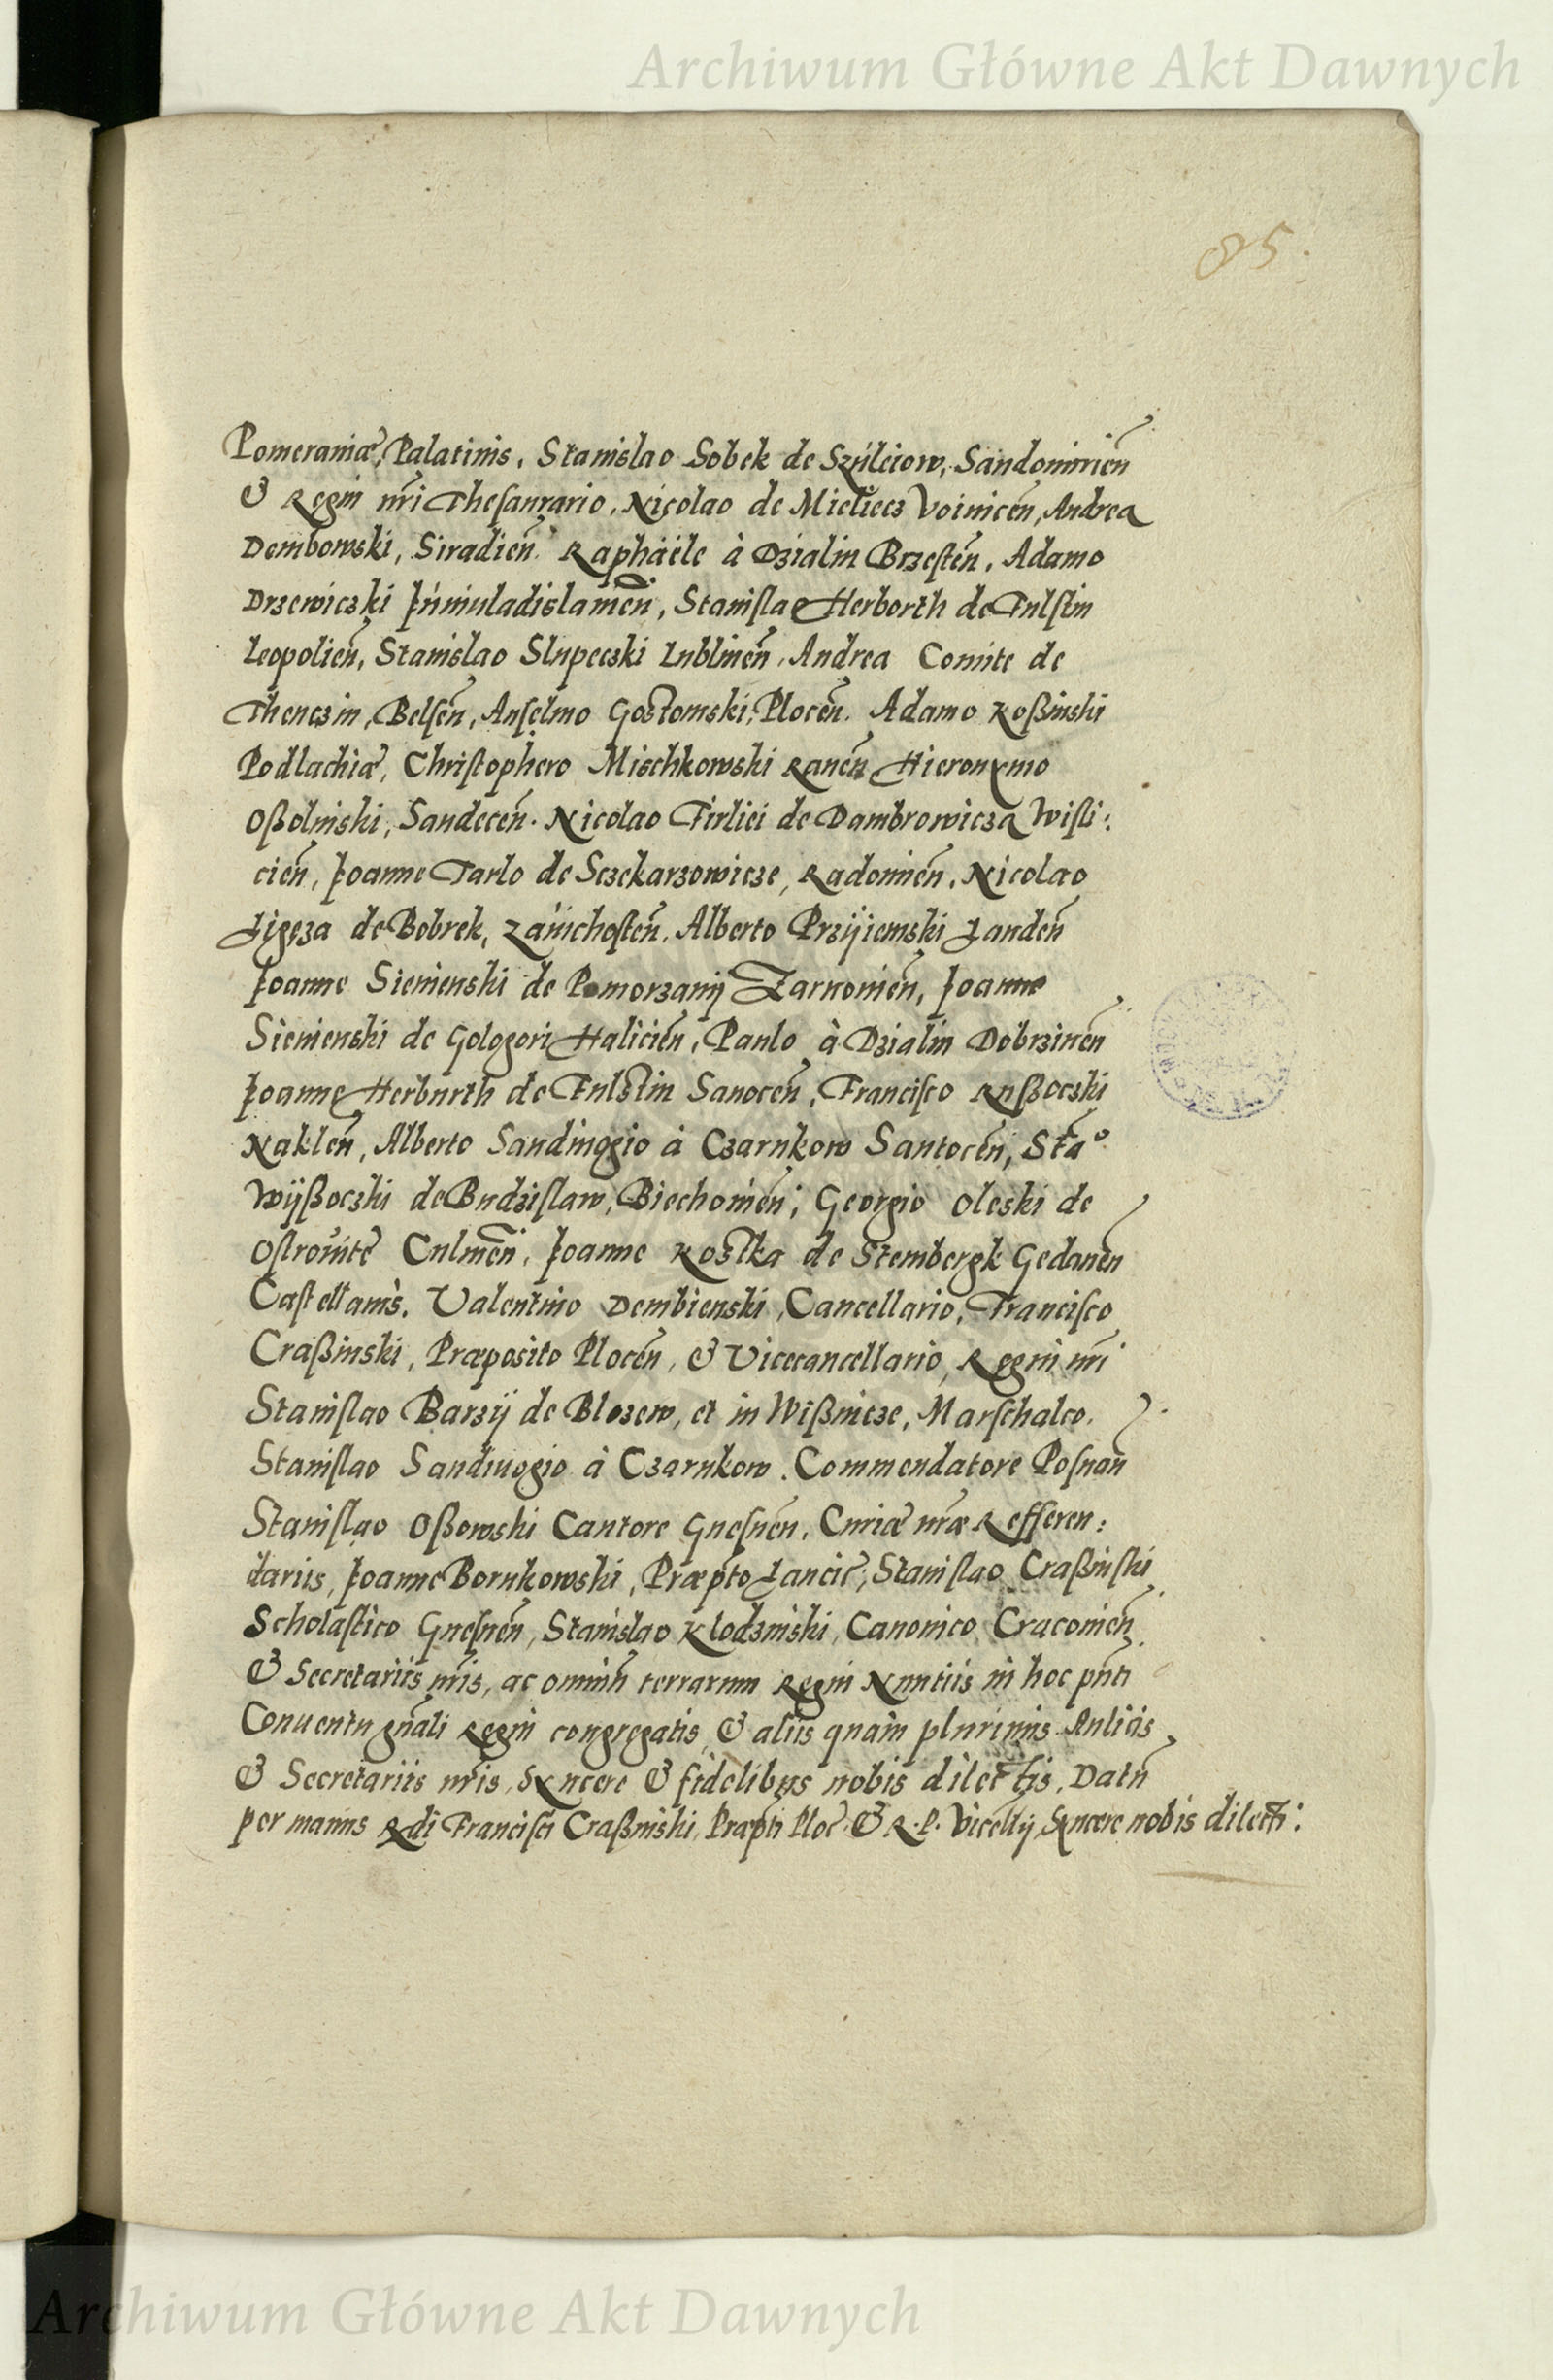 Archiwum Główne Akt Dawnych
85.
Pomeraniæ, Palatinis, Stanislao Sobek de Szuleiow, Sandomirien̄
& Regni nr̄i Thesaurario, Nicolao de Mieliecz Voinicen̄, Andrea
Dembowski, Siradien̄ Raphaële à Dzialin Brzesten̄, Adamo
Drzewiczki Juniuladislauien̄, Stanislao Herborth de Fulstin
Leopolien̄, Stanislao Slupeczski Lublinen̄, Andrea Comite de
Thenczin, Belsen̄, Anselmo Gostomski, Plocen̄. Adamo Koßinski
Podlachiæ, Christophero Mischkowski Rauen̄ Hieronymo
Oßolinski, Sandecen̄. Nicolao Firliei de Dambrowicza Wisli:
cien̄, Joanne Tarlo de Sczekarzowicze, Radomien̄, Nicolao
Ligęza de Bobrek, Zauichosten̄. Alberto Przÿiemski Landen̄
Joanne Sienienski de Pomorzanÿ Zarnouien̄, Joanne
Sienienski de Gologori Halicien̄, Paulo à Dzialin Dobrzinen̄
Joanne Herburth de Fulstin Sanocen̄, Francisco Rußoczki
Naklen̄, Alberto Sandiuogio à Czarnkow Santocen̄, Sta͞o
Wÿßoczki de Budzislaw, Biechouien̄, Georgio Oleski de
Ostrouite Culmen̄, Joanne Kostka de Stembergk Gedanen̄
Castellanis, Valentino Dembienski, Cancellario, Francisco
Craßinski, Præposito Plocen̄, & Vicecancellario, Regni nr̄i
Stanislao Barzÿ de Blozew, et in Wißnicze, Marschalco.
Stanislao Sandiuogio à Czarnkow. Commendatore Posnan̄
Stanislao Oßowski Cantore Gnesnen̄, Curiæ nr̄æ Refferen:
dariis, Joanne Bornkowski, Præpto Lancic̄, Stanislao Craßinski
Scholastico Gnesnen̄, Stanislao Klodzinski, Canonico Cracouien̄
& Secretariis nr̄is, ac omniū terrarum Regni Nuntiis in hoc pn̄ti
Conuentu gn̄ali Regni congregatis, & aliis quam plurimis Aulicis
& Secretariis nr̄is, Syncere & fidelibus nobis dilectis. Datū
per manus Rdi Francisci Craßinski, Præpti Ploc̄ & R. P. Vicecllij, Syncere nobis dilecti:
Archiwum Główne Akt Dawnych